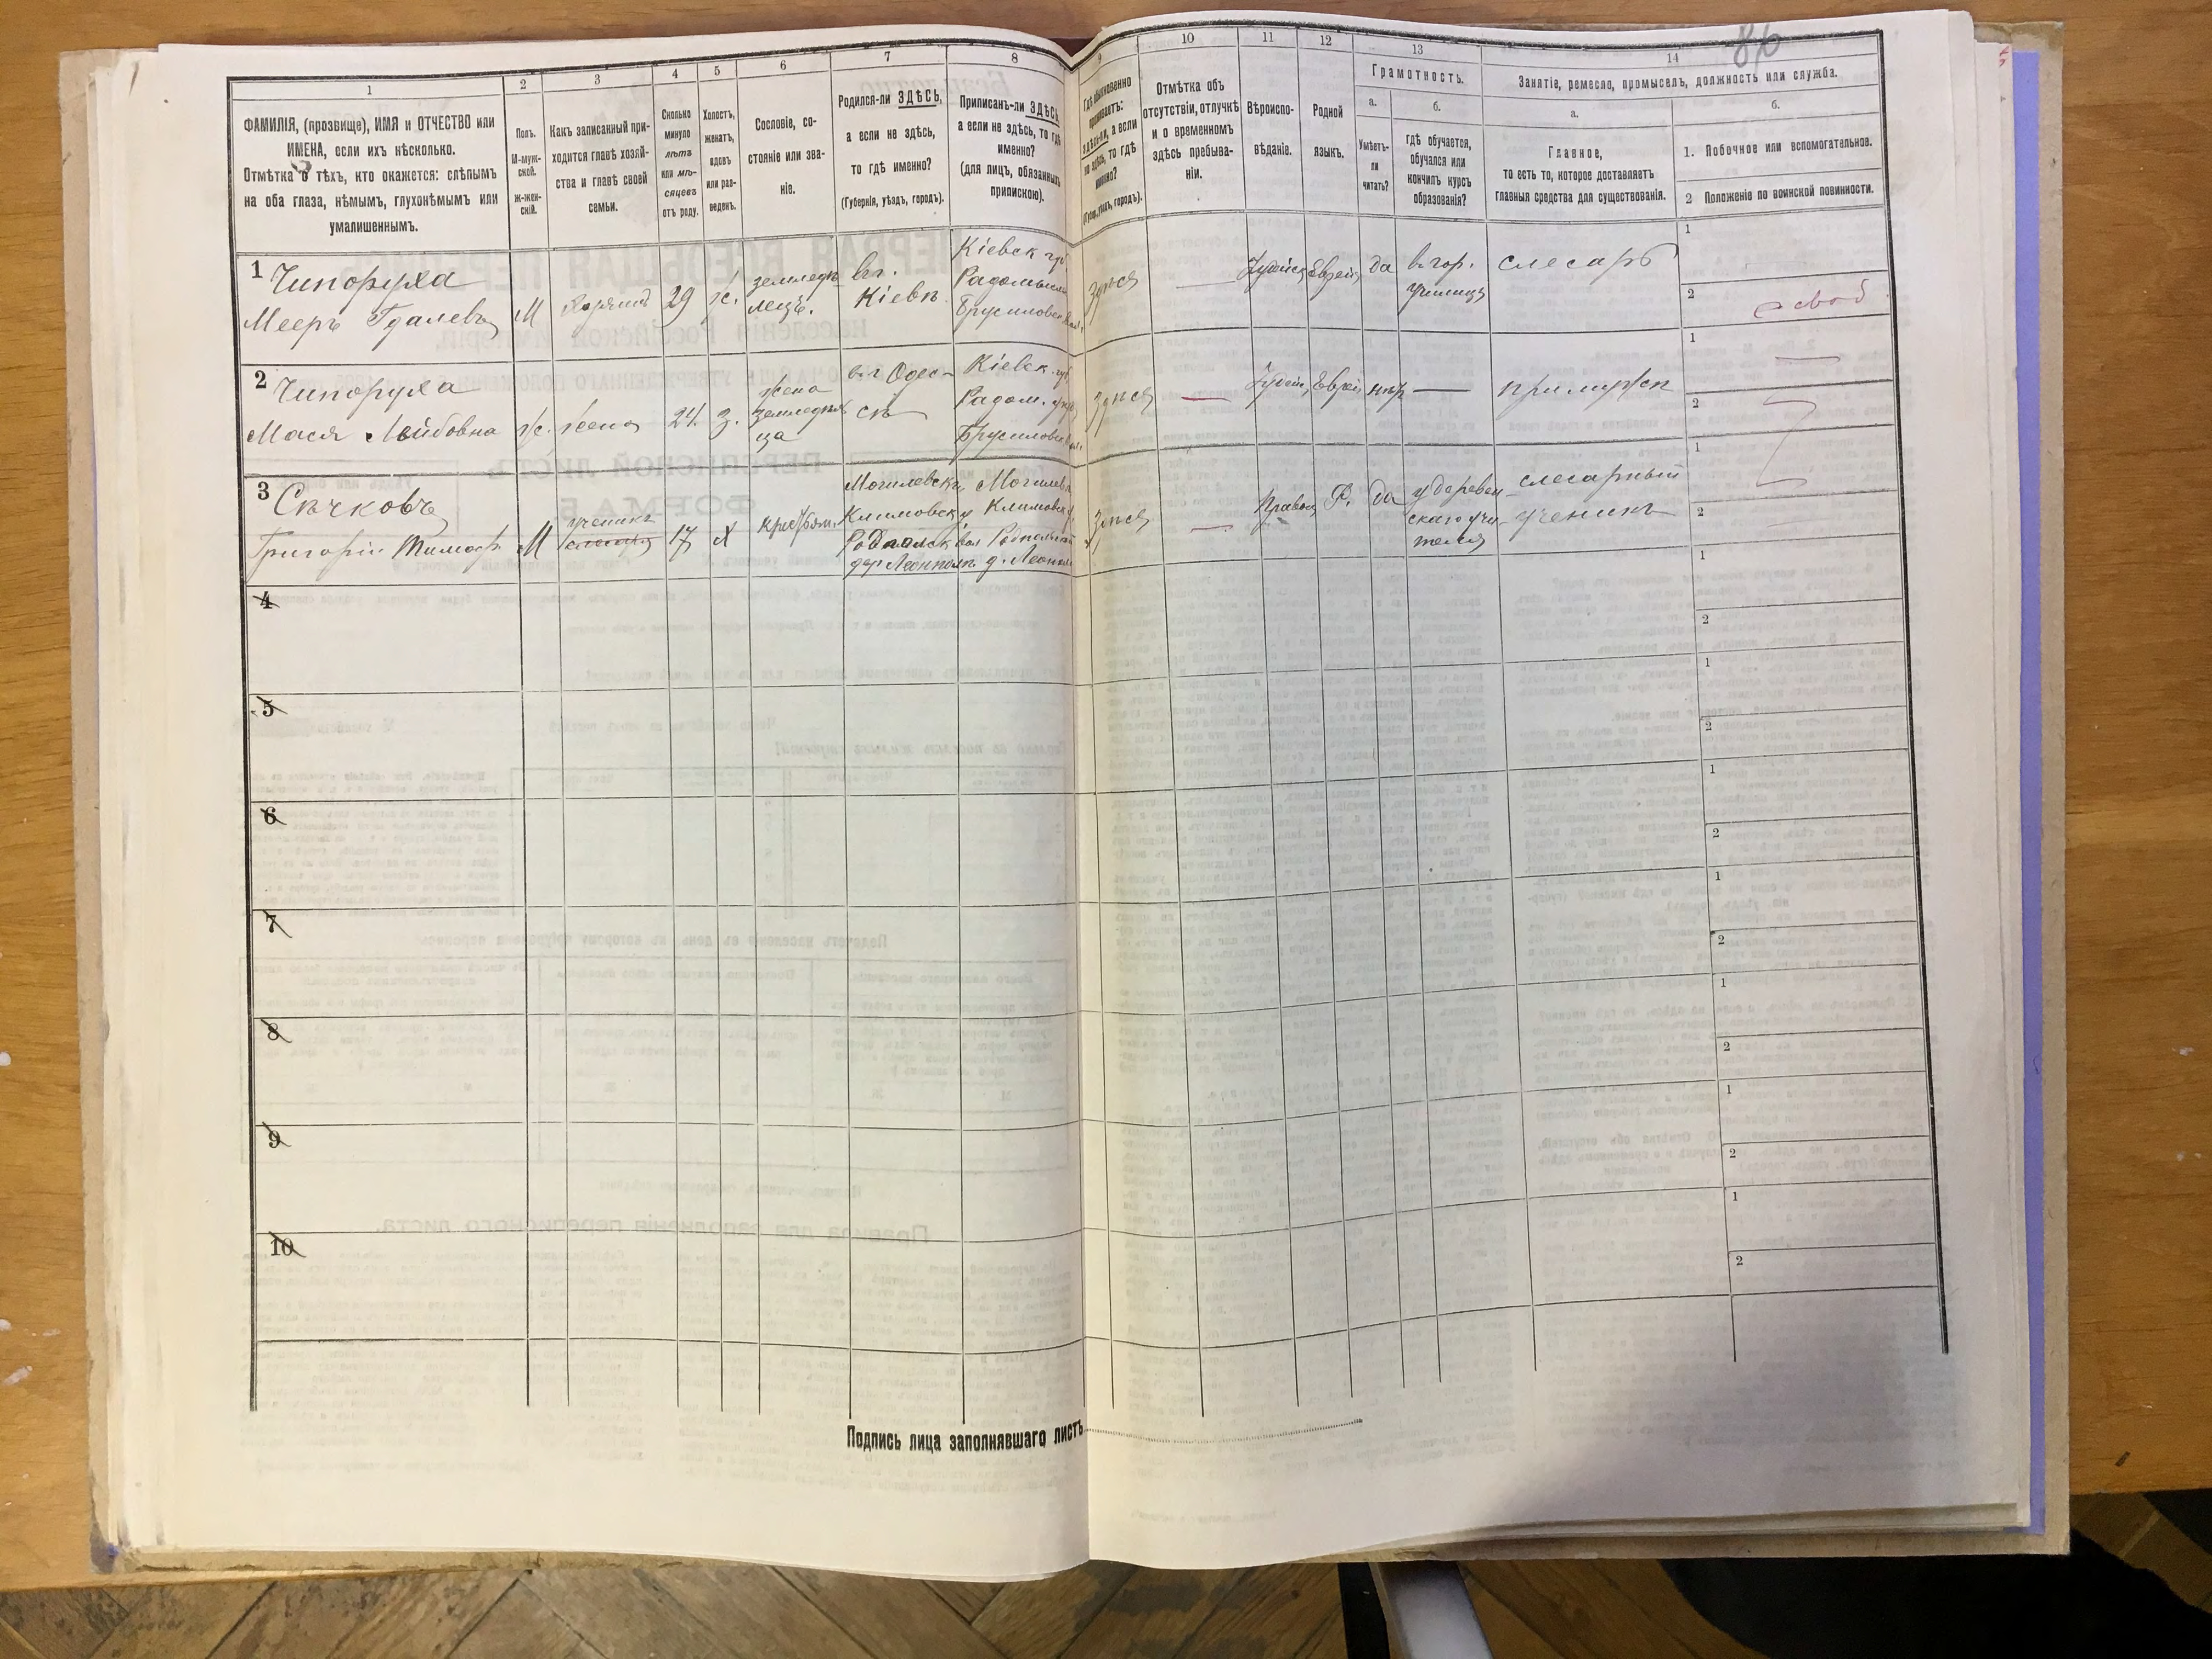 86
1
2
3
4
5
6
7
8
9
10
11
12
13
14
ФАМИЛІЯ, (прозвище), ИМЯ и ОТЧЕСТВО или
ИМЕНА, если ихъ нѣсколько.
Отмѣтка о тѣхъ, кто окажется: слѣпымъ
на оба глаза, нѣмымъ, глухонѣмымъ или
умалишеннымъ.
Полъ.
М-муж-
ской.
Ж-жен-
скій.
Какъ записанный при-
ходится главѣ хозяй-
ства и главѣ своей
семьи.
Сколько
минуло
лѣтъ
или мѣ-
сяцевъ
отъ роду.
Холостъ,
женатъ,
вдовъ
или раз-
веденъ.
Сословіе, со-
стояніе или зва-
ніе.
Родился-ли ЗДѢСЬ,
а если не здѣсь,
то гдѣ именно?
(Губернія, уѣздъ, городъ).
Приписанъ-ли ЗДѢСЬ,
а если не здѣсь, то гдѣ
именно?
(для лицъ, обязанныхъ
припискою).
Гдѣ обыкновенно
проживаетъ:
здѣсь-ли, а если
не здѣсь, то гдѣ
именно?
(Губ., уѣздъ, городъ).
Отмѣтка объ
отсутствіи, отлучкѣ
и о временномъ
здѣсь пребыва-
ніи.
Вѣроиспо-
вѣданіе.
Родной
языкъ.
Грамотность.
а.
Умѣетъ-
ли
читать?
б.
гдѣ обучается,
обучался или
кончилъ курсъ
образованія?
Занятіе, ремесло, промыселъ, должность или служба.
а.
Главное,
то есть то, которое доставляетъ
главныя средства для существованія.
б.
1. Побочное или вспомогательное.
2 Положеніе по воинской повинности.
1 Чипоруха
Мееръ Гдалевъ
М
29
ж.
земледѣ
лецъ.
въ г.
Кіевѣ
Кіевск губ.
Радомысл
Брусиловск
здѣсь
—
Іудейск
Еврейс
да
в гор.
училищ
слесарь
1
2 свод
2 Чипоруха
Мася Лейбовна
ж.
жена
24.
з.
жена
земледѣль
ца
в г Одес-
сѣ
Кіевск. губ.
Радом. уѣзд
Брусиловск
здѣсь
—
Іудейс
Еврей
нѣт
—
при мужѣ
1 —
2
3 Сѣчковъ
Григорій Тимоф
М
ученикъ
слесаря
17
х
крестьян.
Могилевск
Климовск у
дер Леонполь
Могилев
Климовск у.
д. Леонпол
здѣсь
—
Правос
Р.
да
у деревен
скаго учи-
теля
слесарный
ученикъ
1
2
4
1
2
5
1
2
6
1
2
7
1
2
8
1
2
9
1
2
10
1
2
Подпись лица заполнявшаго листъ